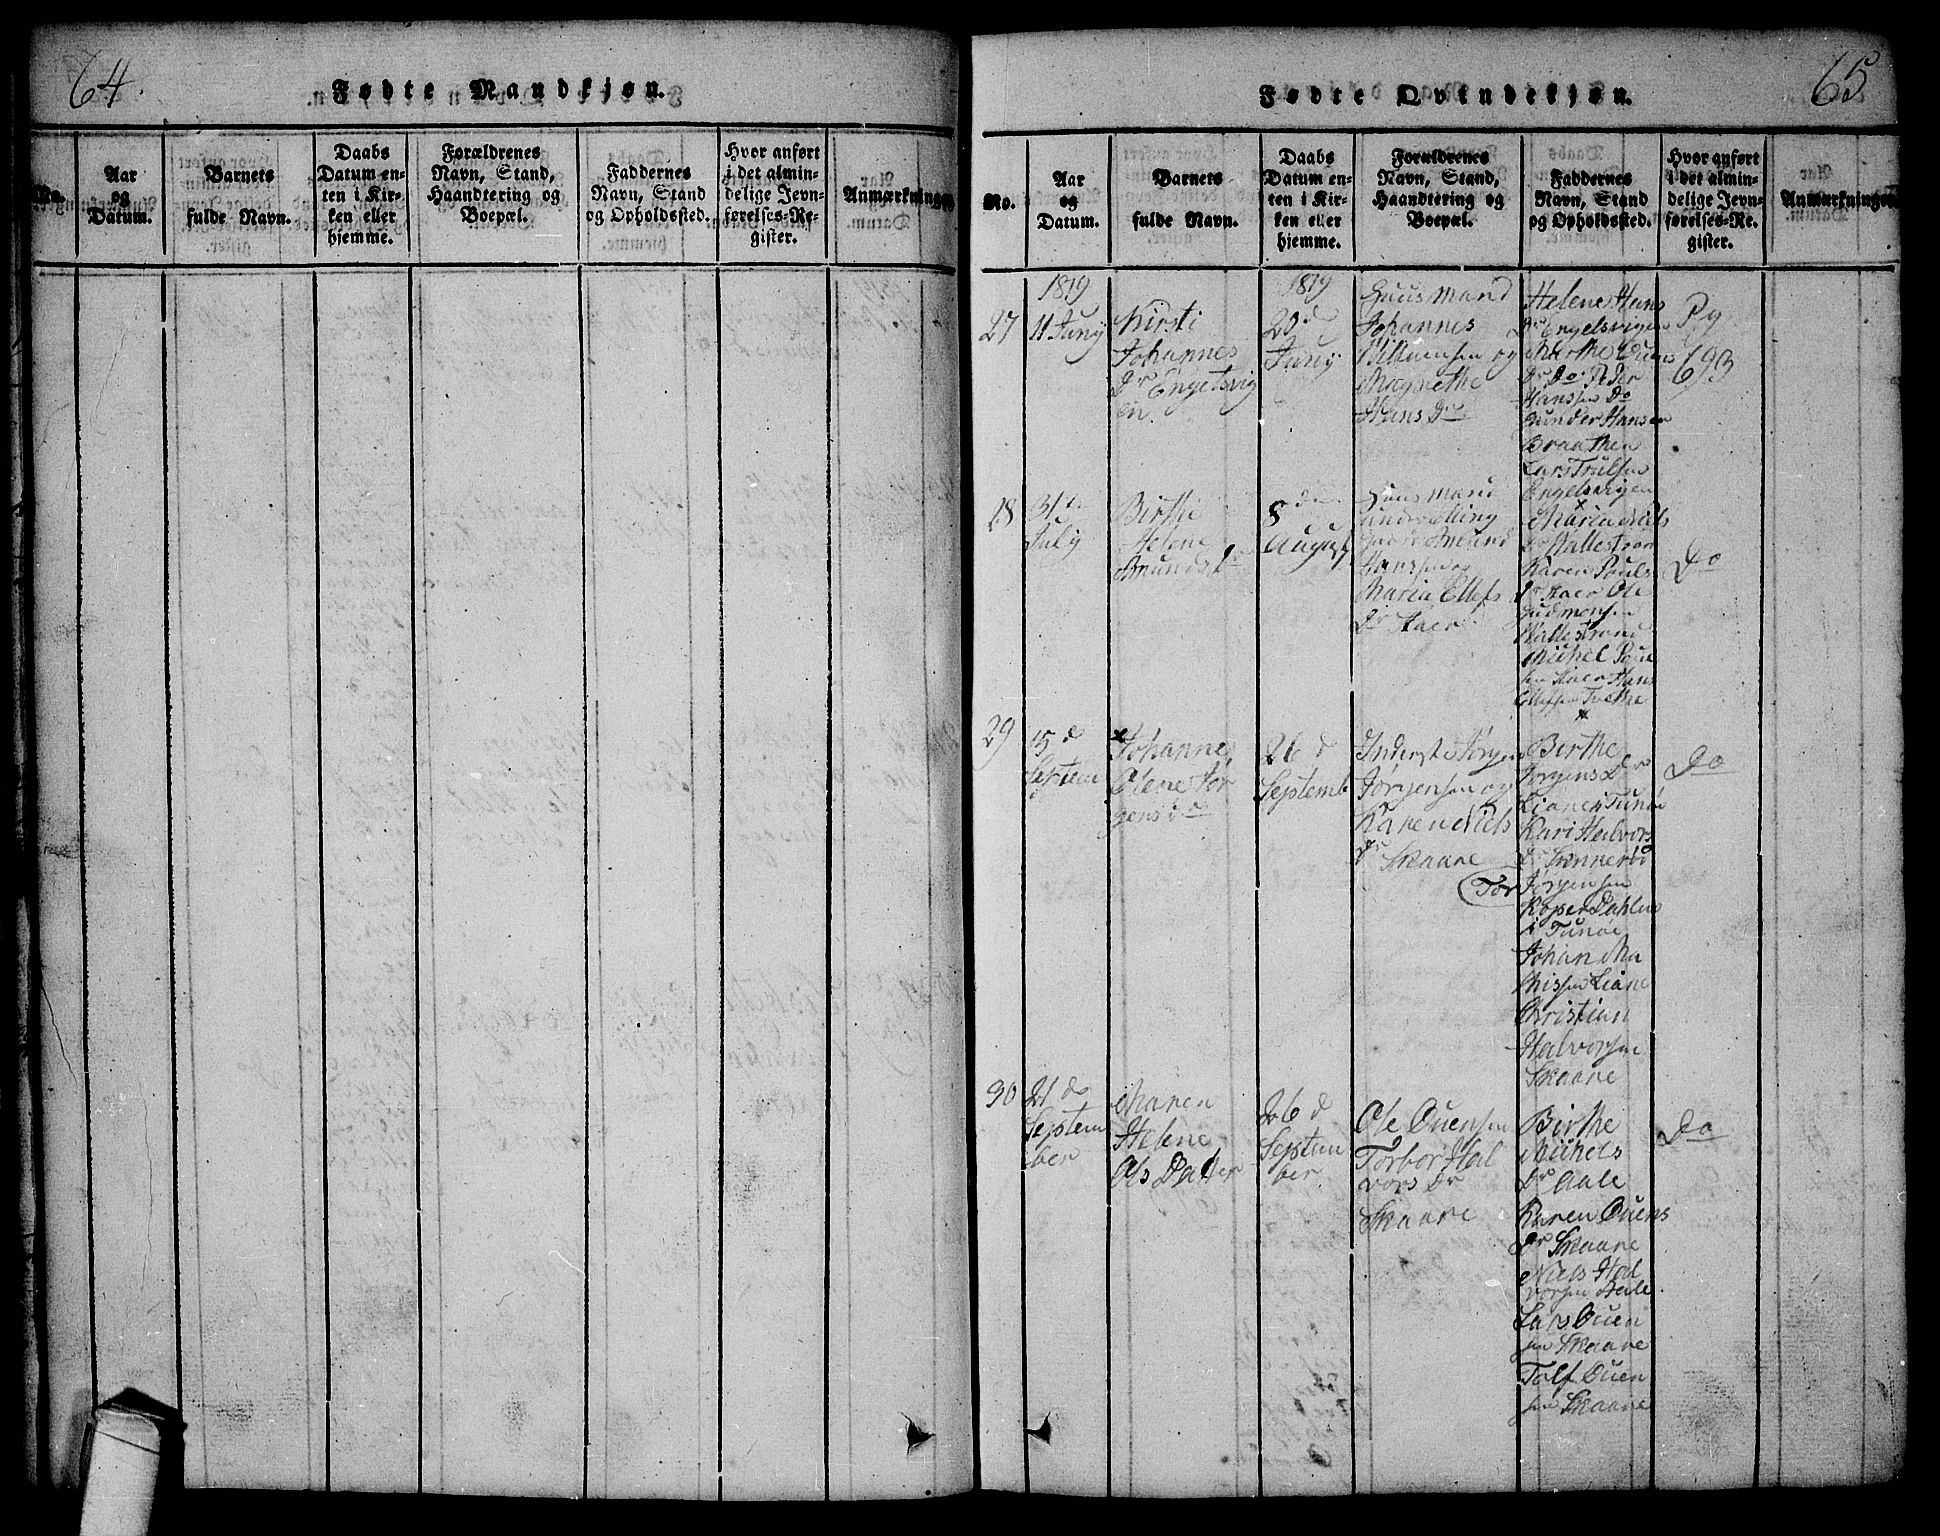 64.
Fødte Mandkjøn.
No.
Aar
og
Datum.
Barnets
fulde Navn.
Daabs
Datum en-
ten i Kir-
ken eller
hjemme.
Forældrenes
Navn, Stand,
Haandtering og
Boepæl.
Faddernes
Navn, Stand
og Opholdsted.
Hvor anført
i det almin-
delige Jevn-
førelses-Re-
gister.
Anmærkninger
65
Fødte Qvindekjøn.
No.
Aar
og
Datum.
Barnets
fulde Navn.
Daabs
Datum en-
ten i Kir-
ken eller
hjemme.
Forældrenes
Navn, Stand,
Haandtering og
Boepæl.
Faddernes
Navn, Stand
og Opholdsted.
Hvor anført
i det almin-
delige Jevn-
førelses-Re-
gister.
Anmærkninger
27
1819
11 Juny
Kirsti
Johannes
Dr Engelsvig
en.
1819
20 d
Juny
Huusmand
Johannes
Willumsen og
Magrethe
Hans Dr
Helene Hans
Dr Engelsvigen
Marthe Ouens
Dr Do Peder
Hanssen Do
Gunder Hansen
Braathen
Lars Trulsen
Engelsvigen
Pg
693
28
31te
July
Birthe
Helene
Amunds Dr
8 de
August
Huusmand
under Elling
gaard Amund
Hanssen og
Maria Ellefs
Dr Aaer
Maria Niels
Dr Wallestran
Karen Pouls
Dr Aaer Ole
Gudmonsen
Wallestrand
Michel Poul
sen Aaer Hans
Ellefsen Trethe
Do
29
15 d
Septem
Johanne
Olene Jør
gens Dr
26 d
Septemb
Inderste Jørgen
Jørgensen og
Karen Niels
Dr Skaare
Birthe
Jørgens Dr
Lianei Tunøe
Kari Halvors
Dr Sønnerød
Tor Jørgensen
Roper Dahlen
i Tunøe
Johan Ma
thissen Liane
Christian
Halvorsen
Skaare
Do
30
21 de
Septem
ber
Maren
Helene
Ols Datter
26 d
Septem
ber
Ole Ouensen
Torbor Hal
vors Dr
Skaare
Birthe
Michels
Dr Aale
Karen Ouens
Dr Skaare
Niels Hal
vorsen Aale
Lars Ouen
sen Skaare
Tolf Ouen
sen Skaare
Do